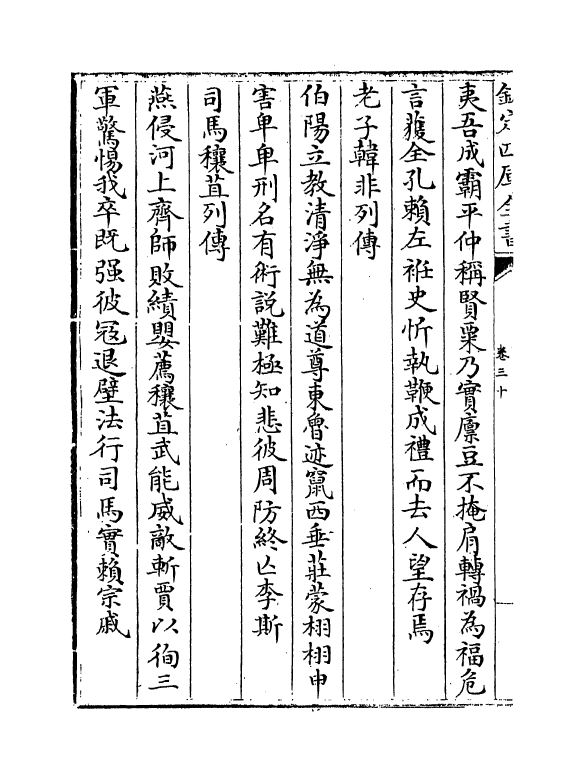 欽定四庫全書
卷三十
夷吾成霸平仲稱賢粟乃實廪豆不掩肩轉禍為福危
言獲全孔賴左袵史忻執鞭成禮而去人望存焉
老子韓非列傳
伯陽立教清淨無為道尊東魯迹竄西垂莊蒙栩栩申
害卑卑刑名有術說難極知悲彼周防終亡李斯
司馬穰苴列傳
燕侵河上齊師敗績嬰薦穰苴武能威敵斬賈以徇三
軍驚惕我卒既强彼寇退壁法行司馬實賴宗戚